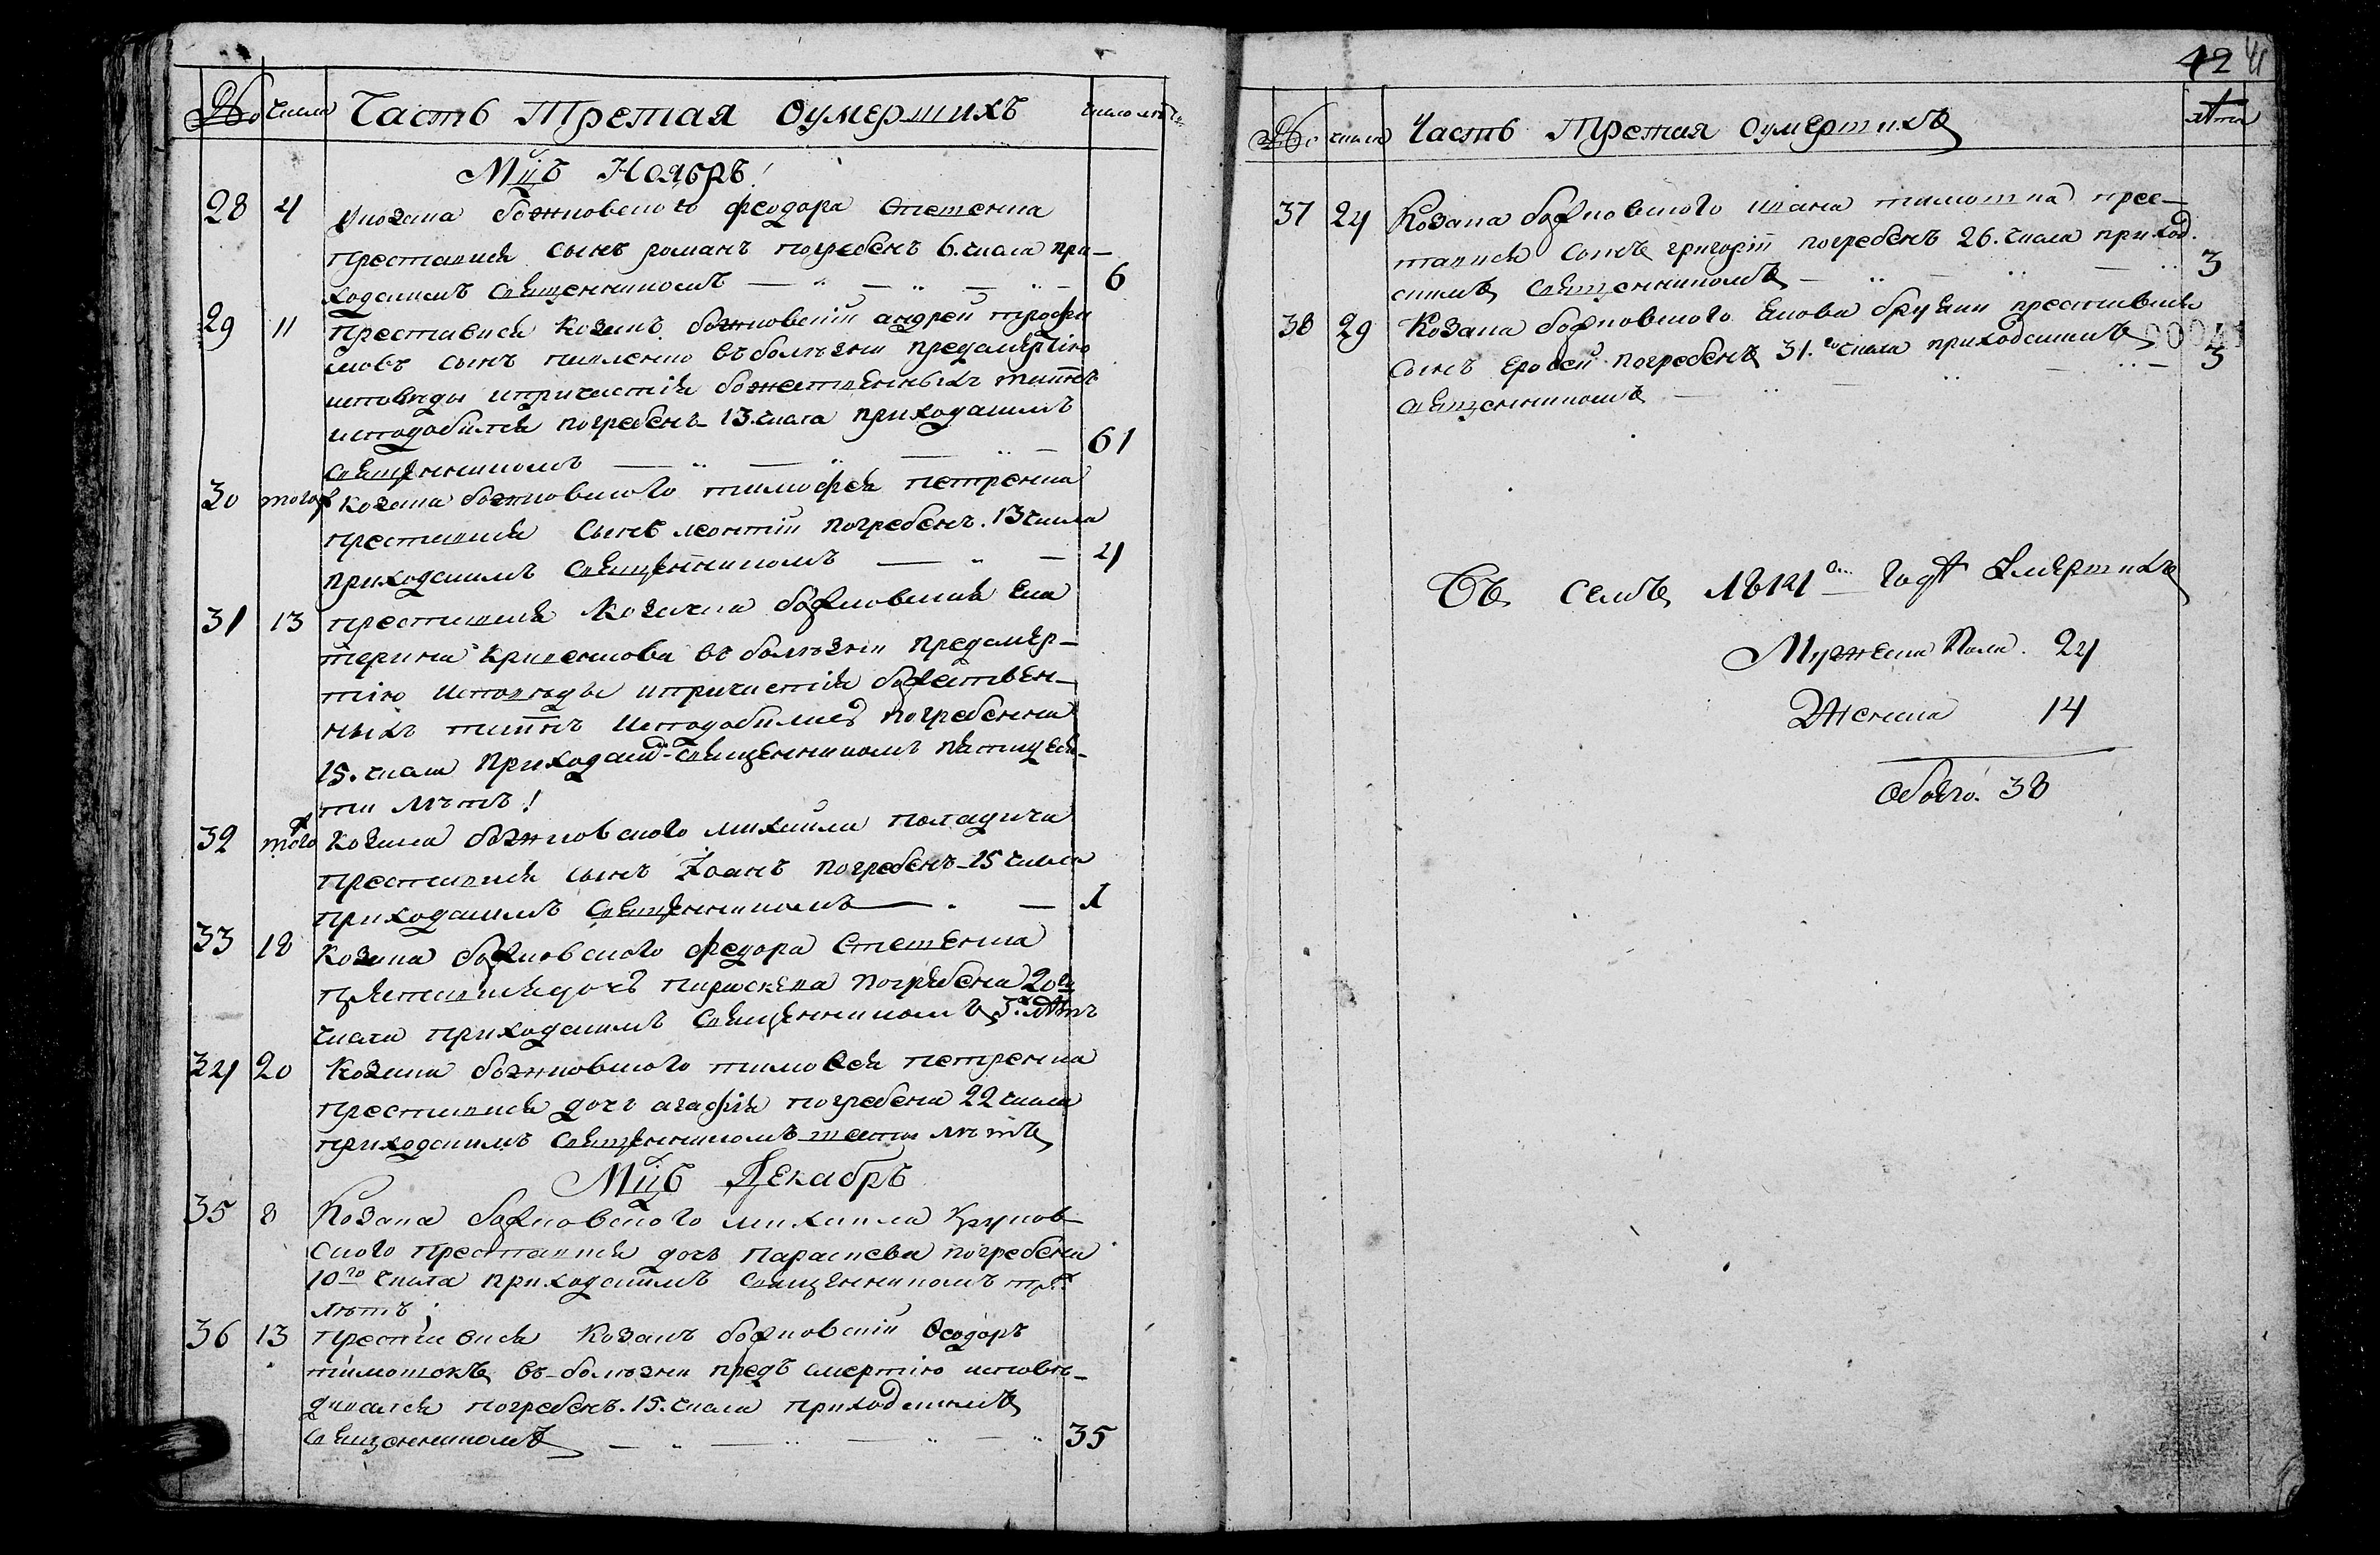 № числа Часть Третая Оумершихъ число лѣтъ
Мцъ Ноябрь
28 4 Укозака божковского феодора Стеценка
преставися сынъ романъ погребенъ 6. числа при-
ходскимъ священникомъ — 6
29 11 Преставися козакъ божковскій андрей трофи
мовъ сынъ въ болѣзни предсмертію
исповѣди ипричастія божественныхъ таинъ
исподобился погребенъ 13 числа приходскимъ
священникомъ — 61
30 тогож козака божковского тимофея петренка
преставися сынъ леонтій погребенъ. 13 числа
приходскимъ священникомъ — 4
31 13 преставися козачка божковская Ека
терина въ болѣзни предсмер-
тію исповѣди ипричастія божествен-
ныхъ таинъ исподобилась погребенна
15. числа приходскимъ священникомъ пятидеся-
ти лѣтъ
32 тогож козака божковского михаила
преставися сынъ Іоанъ погребенъ 15 числа
приходскимъ священникомъ — 1
33 18 козака божковского федора Стеценка
преставися дочь параскева погребена 20го
числа приходскимъ священникомъ 3. лѣтъ
34 20 козака божковского тимовея петренка
преставися дочь агафія погребена 22 числа
приходскимъ священникомъ шести лѣтъ
Мцъ Декабрь
35 8 Козака божковского михаила Круков-
ского преставися дочь параскева погребена
10го числа приходскимъ священникомъ трех
лѣтъ
36 13 преставися козакъ божковскій Ѳеодоръ
тимошокъ въ болѣзни предъ смертію исповѣ-
дывался погребенъ. 15. числа приходскимъ
священникомъ — 35
42 41
№ числа Часть Третая Оумершихъ лѣта
37 24 Козака божковского ивана тимошка прес-
тавися сынъ григорій погребенъ 26. числа приход.
скимъ священникомъ — 3
38 29 Козака божковского преставися
сынъ Еровей погребенъ 31.го числа приходскимъ 3
священникомъ
Въ семъ 1814м году Умершихъ
Мужеска Пола. 24
Женска 14
Обоего. 38